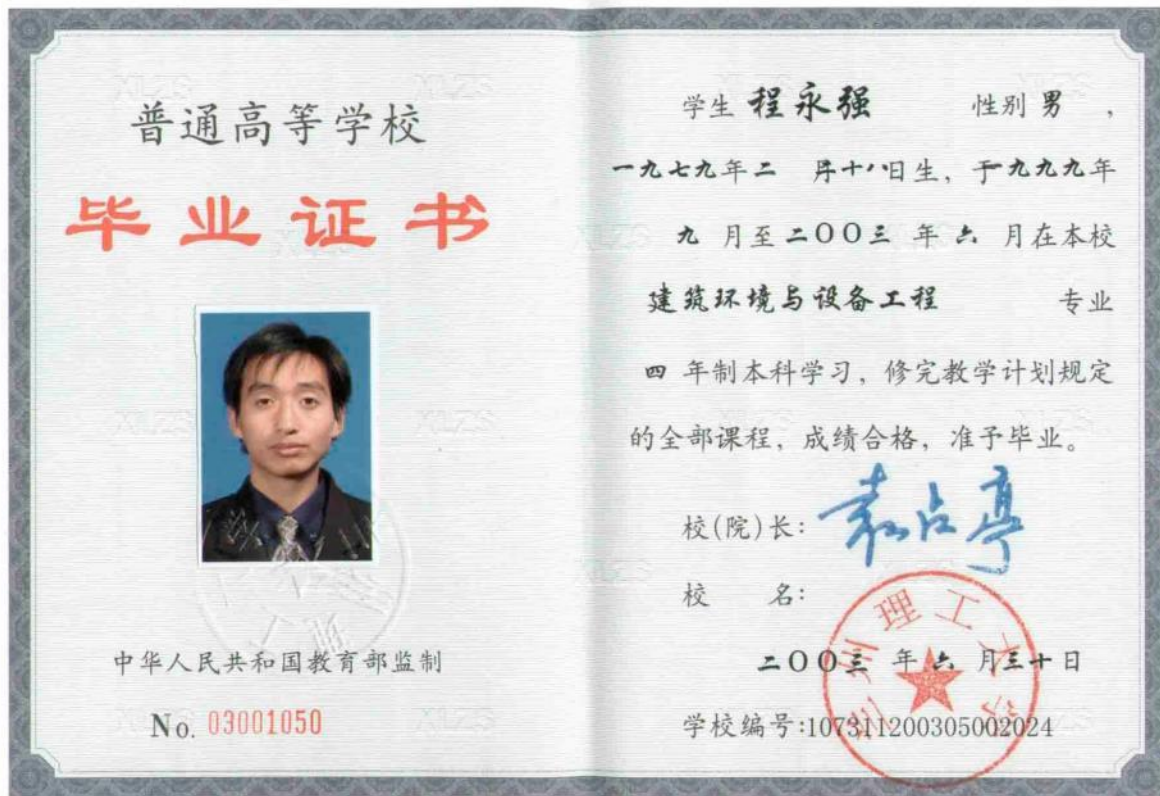 普通高等学校
毕业证书
中华人民共和国教育部监制
No. 03001050
学生 程永强 性别 男 ,
一九七九年二 月十八日生, 于一九九九年
九 月至二〇〇三 年 六 月在本校
建筑环境与设备工程 专业
四 年制本科学习, 修完教学计划规定
的全部课程, 成绩合格, 准予毕业。
校(院)长: 袁占亭
校 名:
兰州理工大学
二〇〇三 年 六 月三十日
学校编号:107311200305002024
XLZS